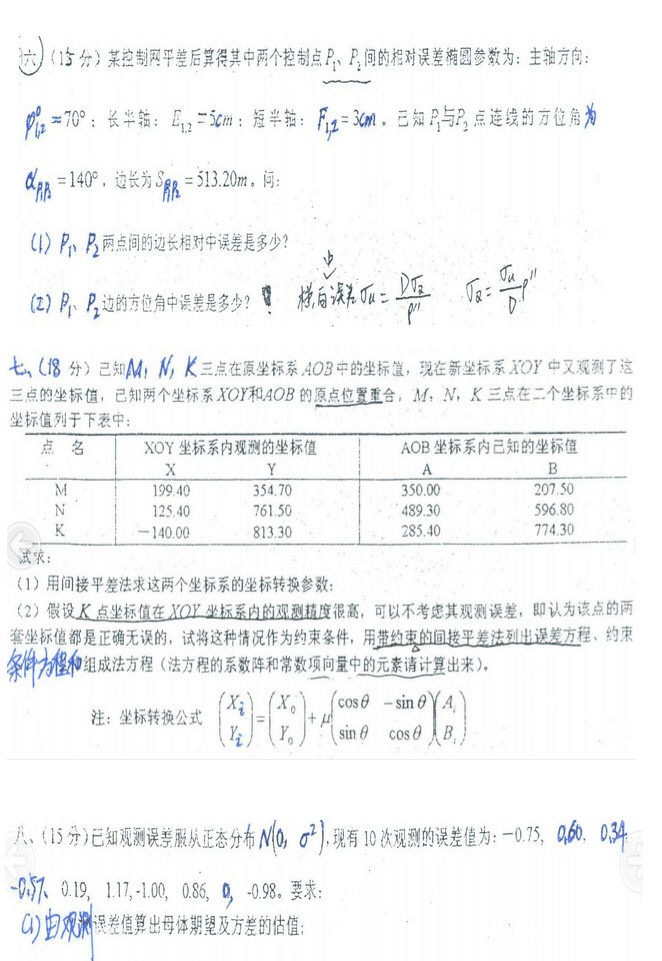 六、(15 分)某控制网平差后算得其中两个控制点P₁、P₂间的相对误差椭圆参数为:主轴方向:
φ⁰₁,₂ = 70°;长半轴:E₁,₂ = 5cm;短半轴:F₁,₂ = 3cm。已知 P₁与P₂ 点连线的方位角为
α_P₁P₂ = 140°,边长为 S_P₁P₂ = 513.20m。问:
(1) P₁、P₂ 两点间的边长相对中误差是多少?
(2) P₁、P₂ 边的方位角中误差是多少?
中
横向误差 σu = Dσα/ρ'' σα = σu/D ρ''
七、(18 分)已知M, N, K三点在原坐标系AOB中的坐标值,现在新坐标系XOY 中又观测了这
三点的坐标值,已知两个坐标系XOY和AOB 的原点位置重合,M,N,K 三点在二个坐标系中的
坐标值列于下表中:
点 名 XOY 坐标系内观测的坐标值 AOB 坐标系内已知的坐标值
X Y A B
M 199.40 354.70 350.00 207.50
N 125.40 761.50 489.30 596.80
K －140.00 813.30 285.40 774.30
试求:
(1)用间接平差法求这两个坐标系的坐标转换参数;
(2)假设K 点坐标值在XOY 坐标系内的观测精度很高,可以不考虑其观测误差,即认为该点的两
套坐标值都是正确无误的,试将这种情况作为约束条件,用带约束的间接平差法列出误差方程、约束
条件方程和组成法方程(法方程的系数阵和常数项向量中的元素请计算出来)。
注:坐标转换公式 (Xi Yi) = (X₀ Y₀) + μ(cosθ －sinθ sinθ cosθ)(Ai Bi)
八、(15 分)已知观测误差服从正态分布N(0, σ²),现有 10 次观测的误差值为:－0.75, 0.60, 0.34,
-0.57, 0.19, 1.17,-1.00, 0.86, 0, -0.98。要求:
(1)由观测误差值算出母体期望及方差的估值;